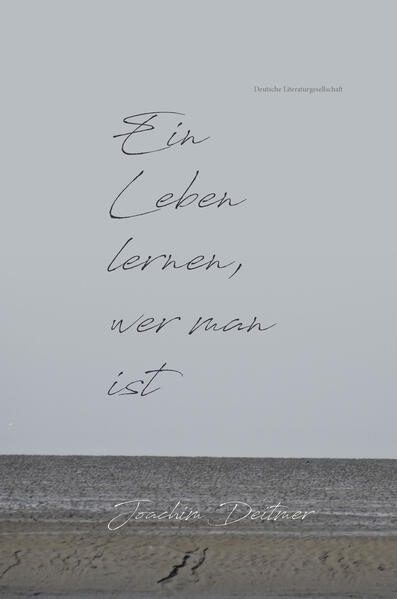 Deutsche Literaturgesellschaft
Ein
Leben
lernen,
wer man
ist
Joachim Deitmer